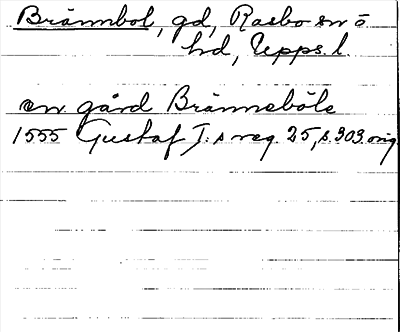 Brännbol, gd, Rasbo sn o
hd, Upps. l.
en gård Brännebôle
1555 Gustaf I:s reg. 25, s. 303 orig.